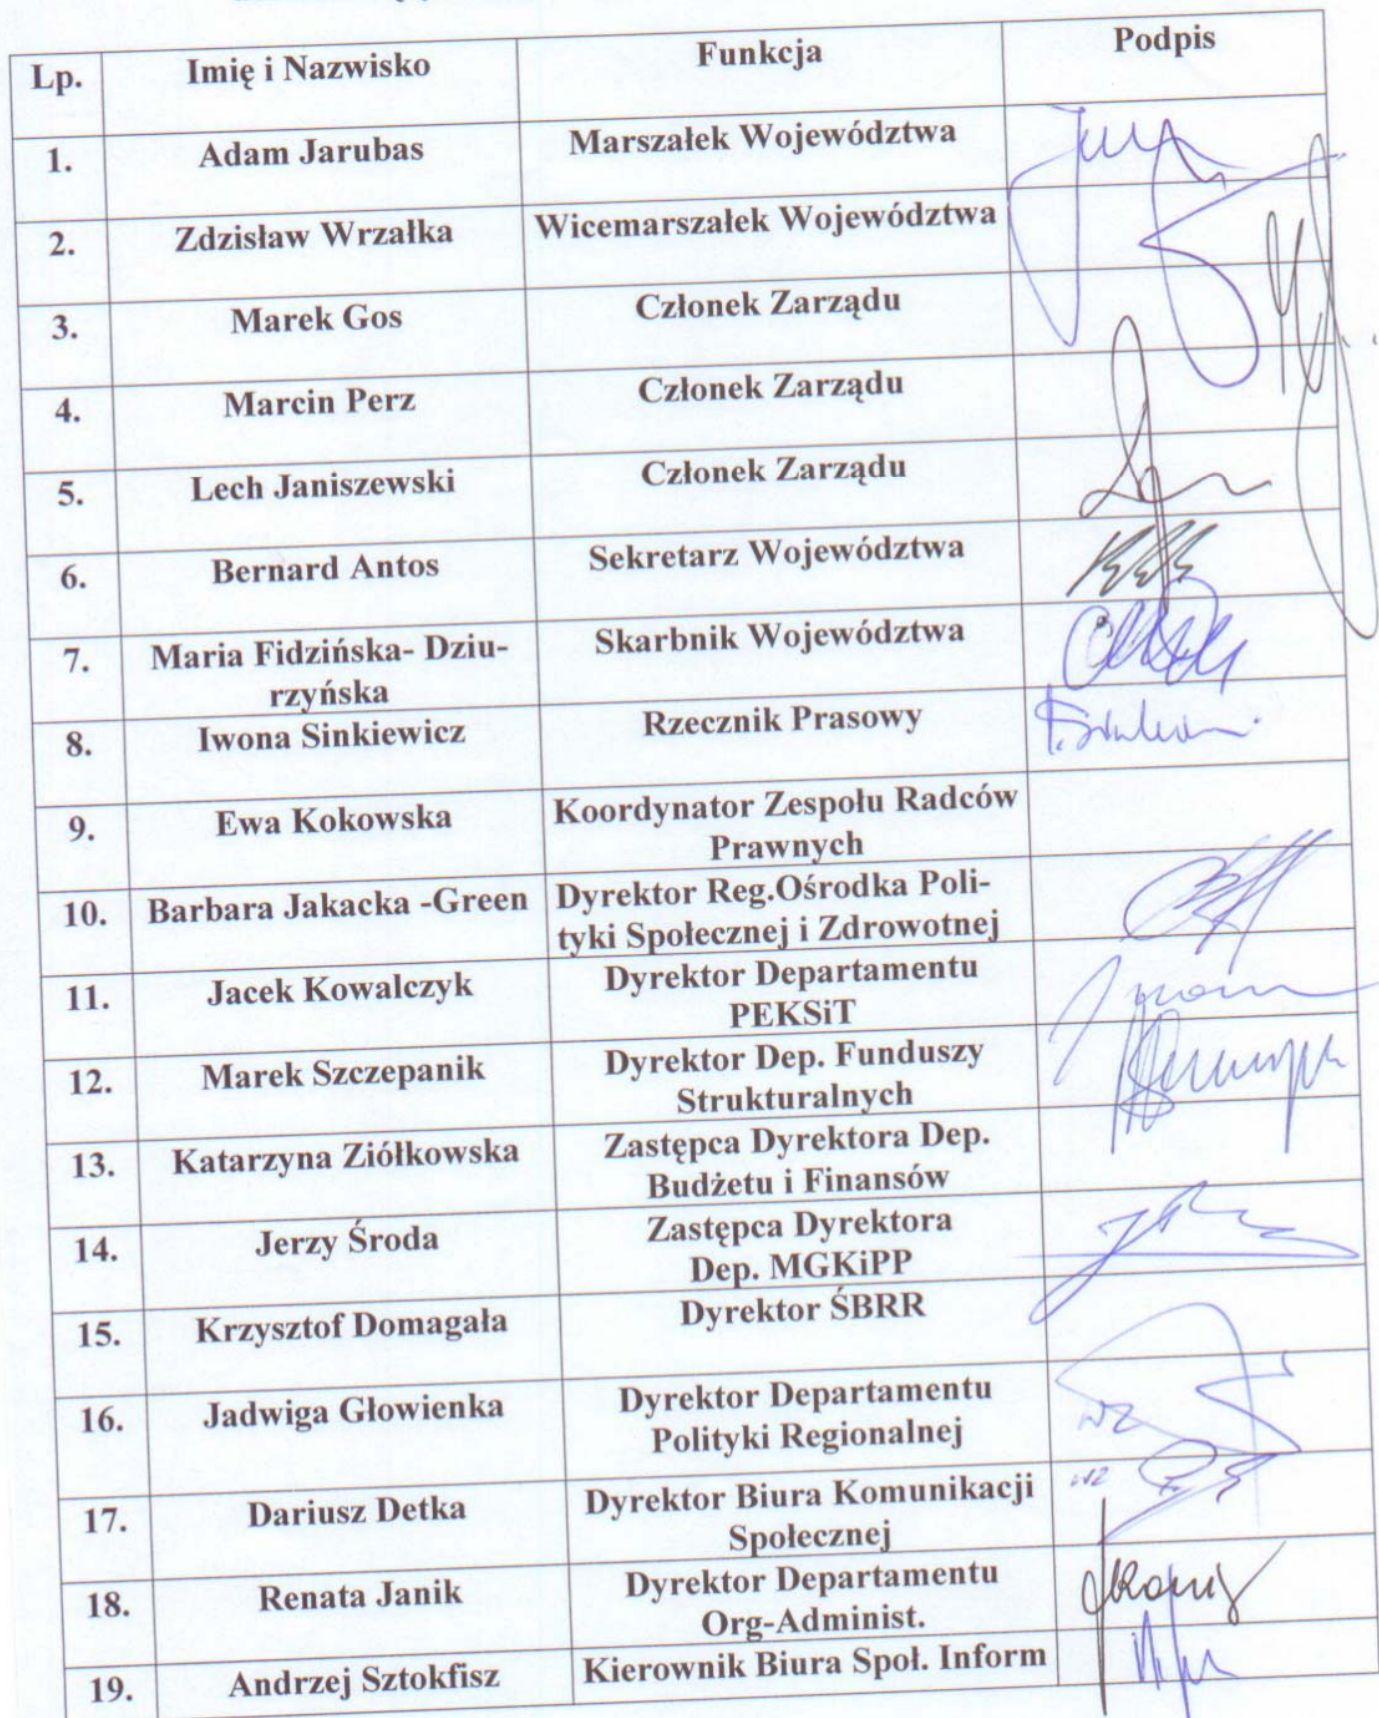 Lp. Imię i Nazwisko Funkcja Podpis
1. Adam Jarubas Marszałek Województwa
2. Zdzisław Wrzałka Wicemarszałek Województwa
3. Marek Gos Członek Zarządu
4. Marcin Perz Członek Zarządu
5. Lech Janiszewski Członek Zarządu
6. Bernard Antos Sekretarz Województwa
7. Maria Fidzińska- Dziu-
rzyńska Skarbnik Województwa
8. Iwona Sinkiewicz Rzecznik Prasowy
9. Ewa Kokowska Koordynator Zespołu Radców
Prawnych
10. Barbara Jakacka -Green Dyrektor Reg.Ośrodka Poli-
tyki Społecznej i Zdrowotnej
11. Jacek Kowalczyk Dyrektor Departamentu
PEKSiT
12. Marek Szczepanik Dyrektor Dep. Funduszy
Strukturalnych
13. Katarzyna Ziółkowska Zastępca Dyrektora Dep.
Budżetu i Finansów
14. Jerzy Środa Zastępca Dyrektora
Dep. MGKiPP
15. Krzysztof Domagała Dyrektor ŚBRR
16. Jadwiga Głowienka Dyrektor Departamentu
Polityki Regionalnej wz
17. Dariusz Detka Dyrektor Biura Komunikacji wz
Społecznej
18. Renata Janik Dyrektor Departamentu
Org-Administ.
19. Andrzej Sztokfisz Kierownik Biura Społ. Inform